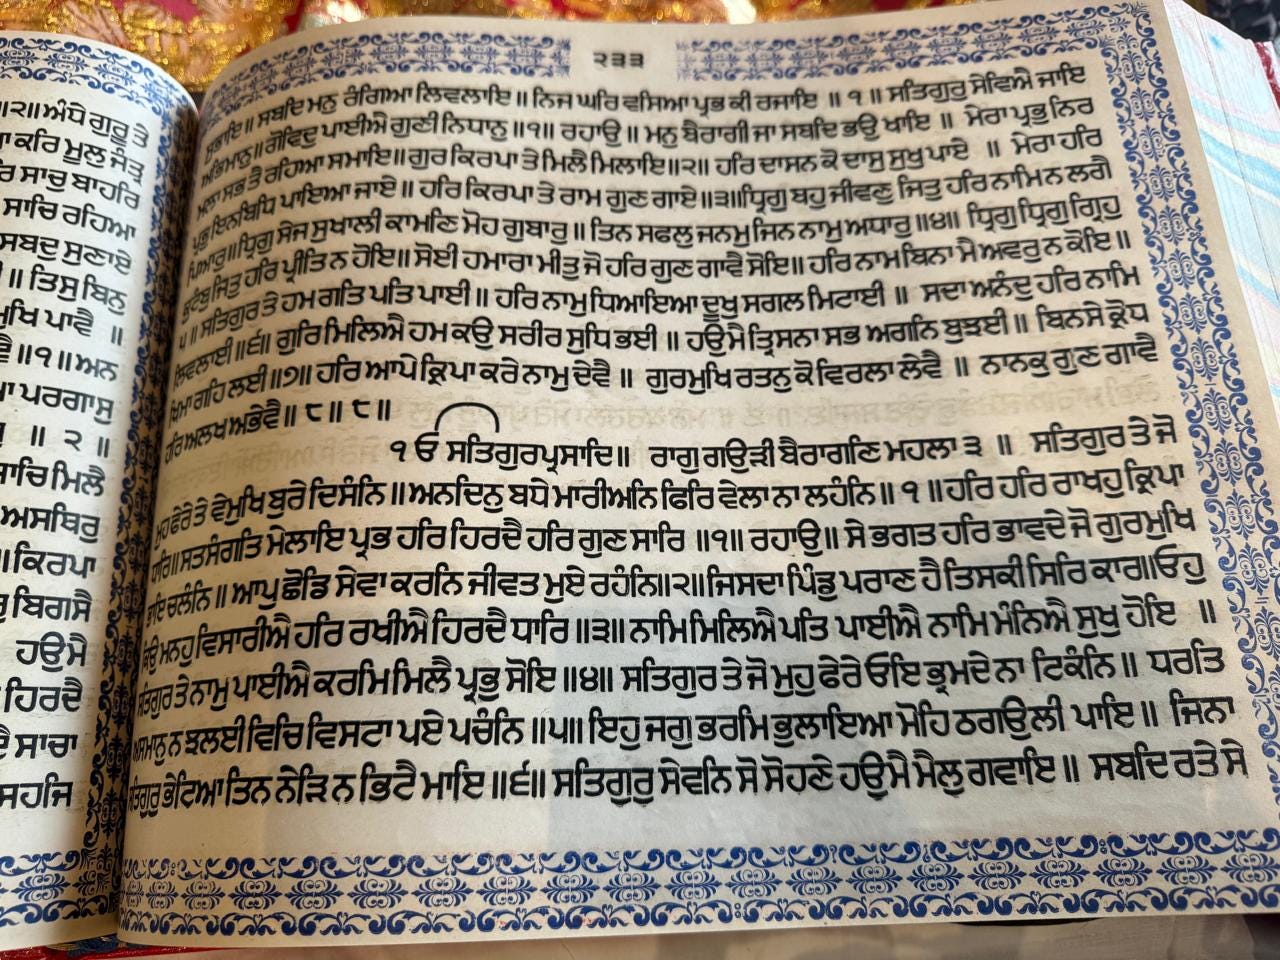 ॥੨॥ ਅੰਧੇ ਗੁਰੂ ਤੇ
ਕਰਿ ਮੂਲੁ ਜੰਤ੍ਰ
ਸਾਚੁ ਬਾਹਰਿ
ਸਾਚਿ ਰਹਿਆ
ਸਬਦੁ ਸੁਣਾਏ
॥ ਤਿਸੁ ਬਿਨੁ
ਪਾਵੈ ॥
॥੧॥ ਅਨ
ਪਰਗਾਸੁ
॥ ੨ ॥
ਸਾਚਿ ਮਿਲੈ
ਅਸਥਿਰੁ
॥ ਕਿਰਪਾ
ਬਿਗਸੈ
ਹਉਮੈ
ਹਿਰਦੈ
ਸਾਚਾ
ਸਹਜਿ
੨੩੩
ਸੁਭਾਇ॥ ਸਬਦਿ ਮਨੁ ਰੰਗਿਆ ਲਿਵਲਾਇ ॥ ਨਿਜ ਘਰਿ ਵਸਿਆ ਪ੍ਰਭ ਕੀ ਰਜਾਇ ॥ ੧ ॥ ਸਤਿਗੁਰੁ ਸੇਵਿਐ ਜਾਇ
ਅਭਿਮਾਨੁ॥ ਗੋਵਿਦੁ ਪਾਈਐ ਗੁਣੀ ਨਿਧਾਨੁ ॥੧॥ ਰਹਾਉ ॥ ਮਨੁ ਬੈਰਾਗੀ ਜਾ ਸਬਦਿ ਭਉ ਖਾਇ ॥ ਮੇਰਾ ਪ੍ਰਭੁ ਨਿਰ
ਮਲਾ ਸਭ ਤੈ ਰਹਿਆ ਸਮਾਇ॥ ਗੁਰ ਕਿਰਪਾ ਤੇ ਮਿਲੈ ਮਿਲਾਇ॥੨॥ ਹਰਿ ਦਾਸਨ ਕੋ ਦਾਸੁ ਸੁਖੁ ਪਾਏ ॥ ਮੇਰਾ ਹਰਿ
ਪ੍ਰਭੁ ਇਨ ਬਿਧਿ ਪਾਇਆ ਜਾਏ ॥ ਹਰਿ ਕਿਰਪਾ ਤੇ ਰਾਮ ਗੁਣ ਗਾਏ ॥੩॥ ਧ੍ਰਿਗੁ ਬਹੁ ਜੀਵਣੁ ਜਿਤੁ ਹਰਿ ਨਾਮਿ ਨ ਲਗੈ
ਪਿਆਰੁ॥ ਧ੍ਰਿਗੁ ਸੇਜ ਸੁਖਾਲੀ ਕਾਮਣਿ ਮੋਹ ਗੁਬਾਰੁ॥ ਤਿਨ ਸਫਲੁ ਜਨਮੁ ਜਿਨ ਨਾਮੁ ਅਧਾਰੁ॥੪॥ ਧ੍ਰਿਗੁ ਧ੍ਰਿਗੁ ਗ੍ਰਿਹੁ
ਕੁਟੰਬੁ ਜਿਤੁ ਹਰਿ ਪ੍ਰੀਤਿ ਨ ਹੋਇ॥ ਸੋਈ ਹਮਾਰਾ ਮੀਤੁ ਜੋ ਹਰਿ ਗੁਣ ਗਾਵੈ ਸੋਇ॥ ਹਰਿ ਨਾਮ ਬਿਨਾ ਮੈ ਅਵਰੁ ਨ ਕੋਇ॥
੫॥ ਸਤਿਗੁਰ ਤੇ ਹਮ ਗਤਿ ਪਤਿ ਪਾਈ॥ ਹਰਿ ਨਾਮੁ ਧਿਆਇਆ ਦੂਖੁ ਸਗਲ ਮਿਟਾਈ ॥ ਸਦਾ ਅਨੰਦੁ ਹਰਿ ਨਾਮਿ
ਲਿਵਲਾਈ॥੬॥ ਗੁਰਿ ਮਿਲਿਐ ਹਮ ਕਉ ਸਰੀਰ ਸੁਧਿ ਭਈ ॥ ਹਉਮੈ ਤ੍ਰਿਸਨਾ ਸਭ ਅਗਨਿ ਬੁਝਈ ॥ ਬਿਨਸੇ ਕ੍ਰੋਧ
ਖਿਮਾ ਗਹਿ ਲਈ॥੭॥ ਹਰਿ ਆਪੇ ਕ੍ਰਿਪਾ ਕਰੇ ਨਾਮੁ ਦੇਵੈ ॥ ਗੁਰਮੁਖਿ ਰਤਨੁ ਕੋ ਵਿਰਲਾ ਲੇਵੈ ॥ ਨਾਨਕੁ ਗੁਣ ਗਾਵੈ
ਹਰਿ ਅਲਖ ਅਭੇਵੈ॥ ੮॥ ੮॥
ੴ ਸਤਿਗੁਰਪ੍ਰਸਾਦਿ॥ ਰਾਗੁ ਗਉੜੀ ਬੈਰਾਗਣਿ ਮਹਲਾ ੩ ॥ ਸਤਿਗੁਰ ਤੇ ਜੋ
ਮੁਹ ਫੇਰੇ ਤੇ ਵੇਮੁਖ ਬੁਰੇ ਦਿਸੰਨਿ ॥ ਅਨਦਿਨੁ ਬਧੇ ਮਾਰੀਅਨਿ ਫਿਰਿ ਵੇਲਾ ਨਾ ਲਹੰਨਿ॥ ੧ ॥ ਹਰਿ ਹਰਿ ਰਾਖਹੁ ਕ੍ਰਿਪਾ
ਧਾਰਿ॥ ਸਤਸੰਗਤਿ ਮੇਲਾਇ ਪ੍ਰਭ ਹਰਿ ਹਿਰਦੈ ਹਰਿ ਗੁਣ ਸਾਰਿ ॥੧॥ ਰਹਾਉ॥ ਸੇ ਭਗਤ ਹਰਿ ਭਾਵਦੇ ਜੋ ਗੁਰਮੁਖਿ
ਭਾਇ ਚਲੰਨਿ ॥ ਆਪੁ ਛੋਡਿ ਸੇਵਾ ਕਰਨਿ ਜੀਵਤ ਮੁਏ ਰਹੰਨਿ॥੨॥ ਜਿਸਦਾ ਪਿੰਡੁ ਪਰਾਣ ਹੈ ਤਿਸਕੀ ਸਿਰਿ ਕਾਰ॥ ਓਹੁ
ਕਿਉ ਮਨਹੁ ਵਿਸਾਰੀਐ ਹਰਿ ਰਖੀਐ ਹਿਰਦੈ ਧਾਰਿ ॥੩॥ ਨਾਮਿ ਮਿਲਿਐ ਪਤਿ ਪਾਈਐ ਨਾਮਿ ਮੰਨਿਐ ਸੁਖੁ ਹੋਇ ॥
ਸਤਿਗੁਰ ਤੇ ਨਾਮੁ ਪਾਈਐ ਕਰਮਿ ਮਿਲੈ ਪ੍ਰਭੁ ਸੋਇ ॥੪॥ ਸਤਿਗੁਰ ਤੇ ਜੋ ਮੁਹੁ ਫੇਰੇ ਓਇ ਭ੍ਰਮਦੇ ਨਾ ਟਿਕੰਨਿ॥ ਧਰਤਿ
ਅਸਮਾਨੁ ਨ ਝਲਈ ਵਿਚਿ ਵਿਸਟਾ ਪਏ ਪਚੰਨਿ ॥੫॥ ਇਹੁ ਜਗੁ ਭਰਮਿ ਭੁਲਾਇਆ ਮੋਹਿ ਠਗਉਲੀ ਪਾਇ॥ ਜਿਨਾ
ਸਤਿਗੁਰੁ ਭੇਟਿਆ ਤਿਨ ਨੇੜਿ ਨ ਭਿਟੈ ਮਾਇ ॥੬॥ ਸਤਿਗੁਰੁ ਸੇਵਨਿ ਸੋ ਸੋਹਣੇ ਹਉਮੈ ਮੈਲੁ ਗਵਾਇ॥ ਸਬਦਿ ਰਤੇ ਸੇ